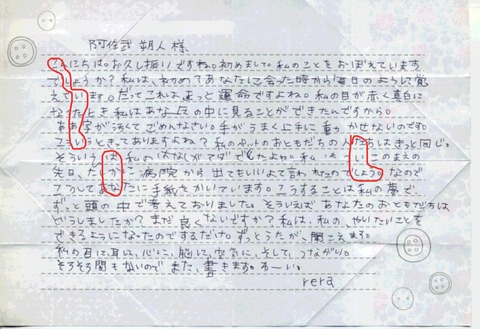 阿佐武 朔人 様
こんにちは。お久し振りですね。初めまして。私のことをおぼえています
でしょうか?私は、初めてあなたに会った時から毎日のように覚
えています。だってこれはきっと運命ですよね。私の目が赤く真白に
なったとき、私はあなたの中に見ることができたんですから。
ああ字が ごめんなさい。手がうまく上手に動かせないのです。
こういうときってありますよね?私のペットのおともだちの人たちはきっと同じ。
そういう 私の このまえの
先日、たしかに病院から出てもいいよて言われたのでしょう。なので
こうしてあなたに手紙をかいています。こうすることは私の夢で、
ずっと頭の中で考えておりました。そういえばあなたのおともだちは
どうしましたか?まだ良くないですか?私は、私の、やりたいことを
できるようになったのでするだけ。ずっとうたが、聞こえます。
私の 耳に、心に、脳に、空気に、そして、つながり。
そろそろ ないのでまた、書きます。わーい。
rera